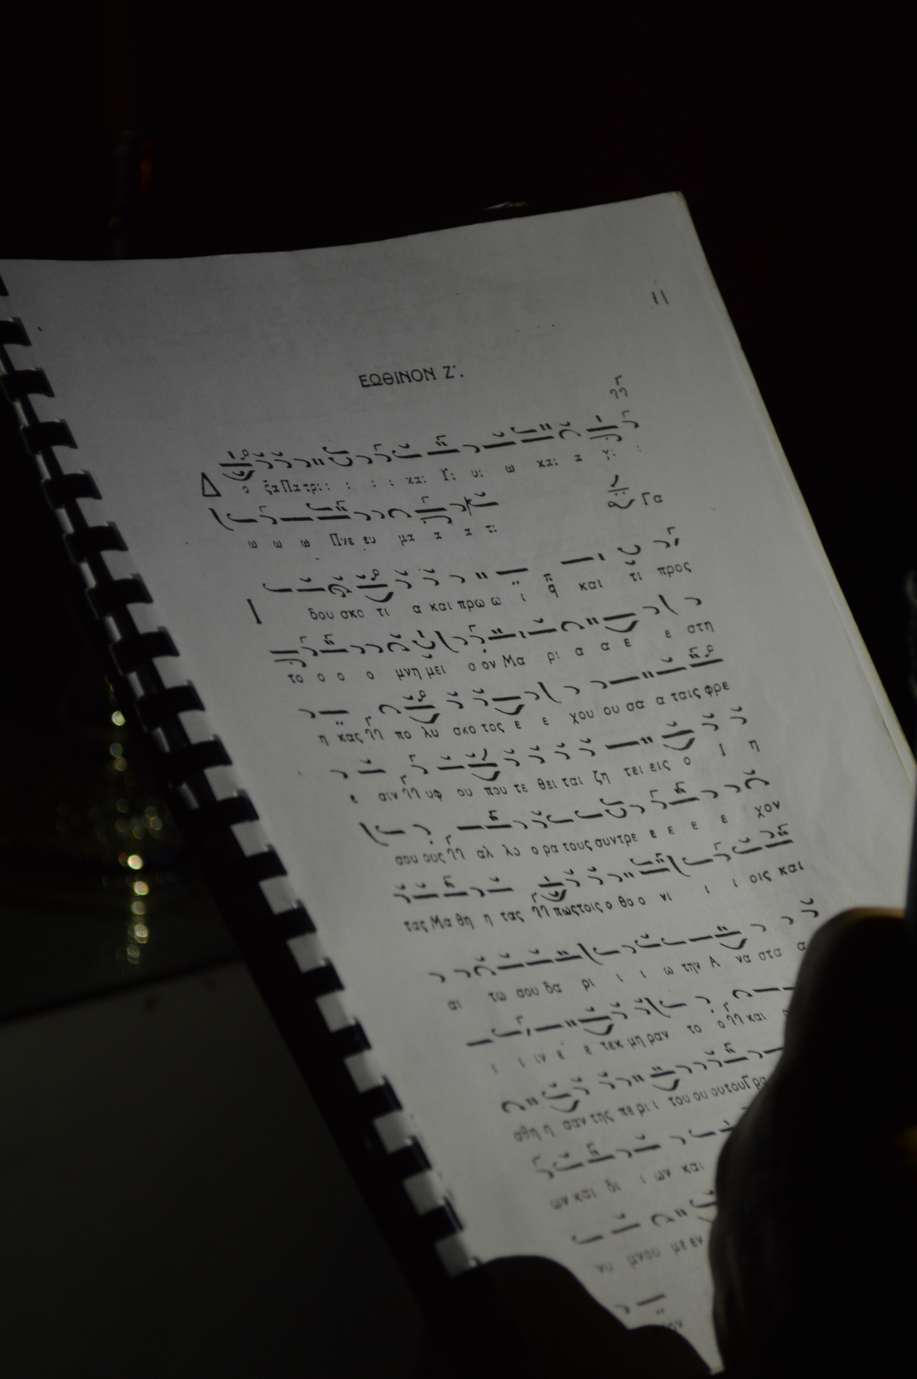 11
ΕΩΘΙΝΟΝ Ζ΄.
Δ ο ξα Πα τρι ι ι ι ι και Υι υι ω και α γι ι
ω ω ω Πνε ευ μα α α τι Γα
Ι δου σκο τι α και πρω ω ι ϊ και τι προς
το ο ο ο μνη μει ο ον Μα ρι α α ε ε στη
η κας πο λυ σκο τος ε ε χου ου σα α ταις φρε
ε σιν υφ ου που τε θει ται ζη τει εις ο Ι η
σου ους αλ λο ο ρα τους συντρε ε ε ε ε χον
τας Μα θη η τας πως τοις ο θο ο νι ι ι οις και
αι τω σου δα ρι ι ι ω την Α να στα α
ι ι ιν ε ε τεκ μη ραν το ο και
σθη η σαν της πε ρι ι του ου ουτου Γρα
ων και δι ι ων και
νυ μνου με εν